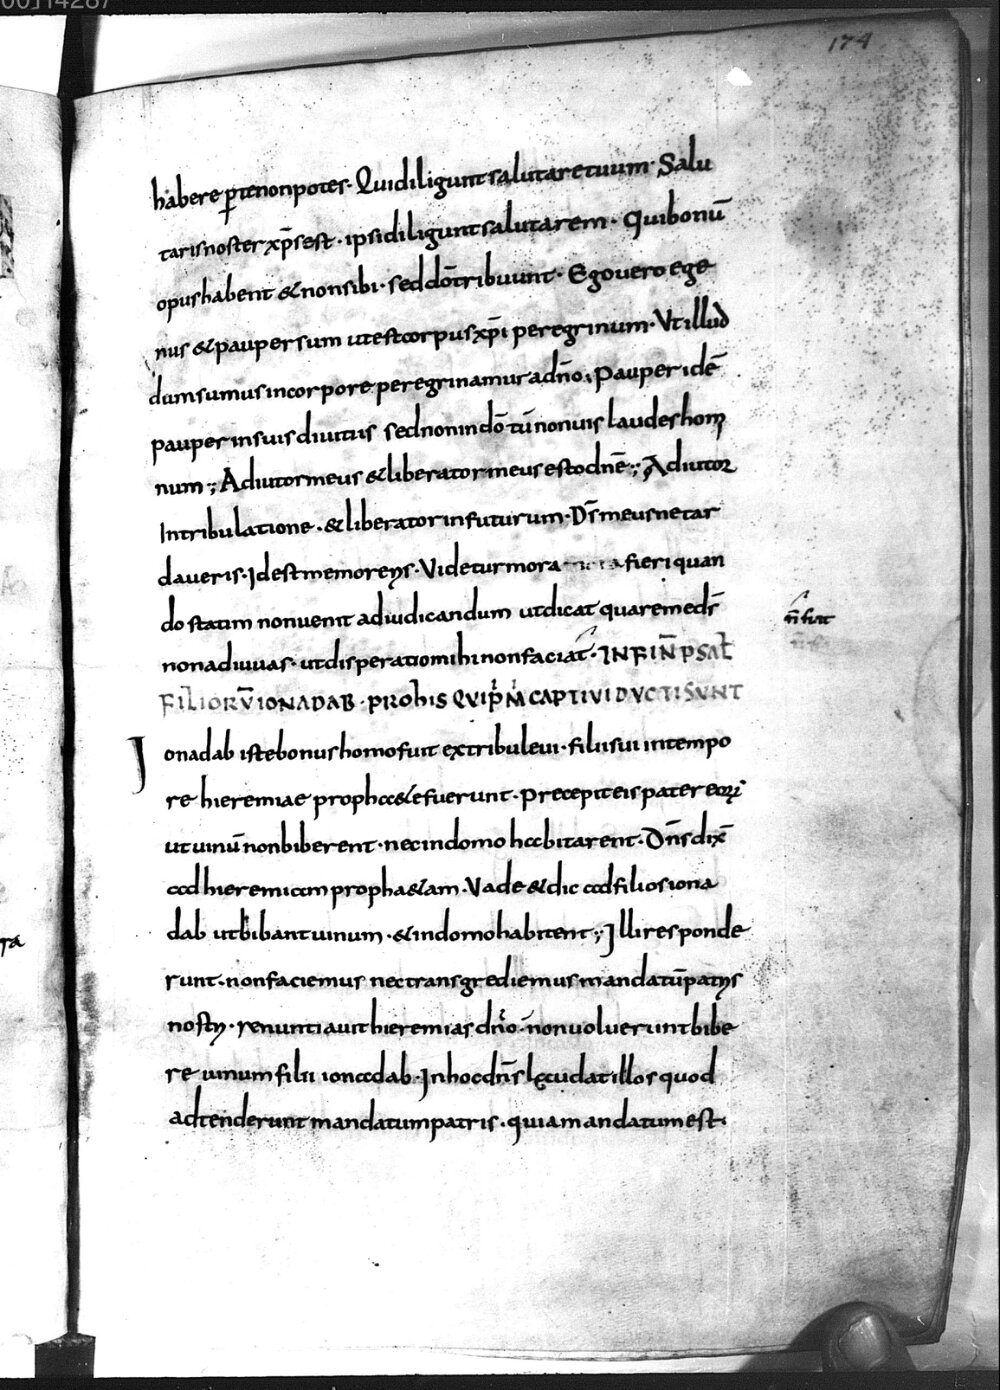 174
habere p̱tenonpotes· Quidiliguntsalutaretuum· Salu
tarisnoster xp̄sest· ipsidiliguntsalutarem· Quibonū
opushabent &nonsibi· seddōtribuunt· Egouero ege
nus &paupersum utestcorpusxp̄i peregrinum· Vtillud
dumsumusincorpore peregrinamur adn̄o; Pauper idē
pauper insuis diuitiis sednonindō tū nonuis laudes hom
num; Adiutormeus &liberator meus estodn̄e; Adiutor
Intribulatione· &liberator infuturum· Dn̄s meusnetar
daueris· Idest memoreris· Videturmora fieri quan
do statim nonuenit adiudicandum utdicat quaremeds̄
nonadiuuas· utdisperatiomihinonfaciat· INFIN̄ PSAL̄
FILIORŪ IONADAB· PROHIS QUIPM̄ CAPTIVI DUCTI SUNT
Ionadab istebonushomofuit extribuleui· filiisui intempo
re hieremiae proph&aefuerunt· Precepiteis pater eorum
ut uinū nonbiberent· necindomo habitarent· Dn̄s dix̄
ad hieremiam proph&am· Vade &dic adfilios iona
dab utbibant uinum· &indomohabitent; Illiresponde
runt· nonfaciemus nectransgrediemus mandatū patris
nostri· renuntiauit hieremias dn̄o· nonuoluerunt bibe
re uinum filii ionadab· Inhocdn̄s laudat illos quod
adtenderunt mandatumpatris· quiamandatum est·
n̄ fuit